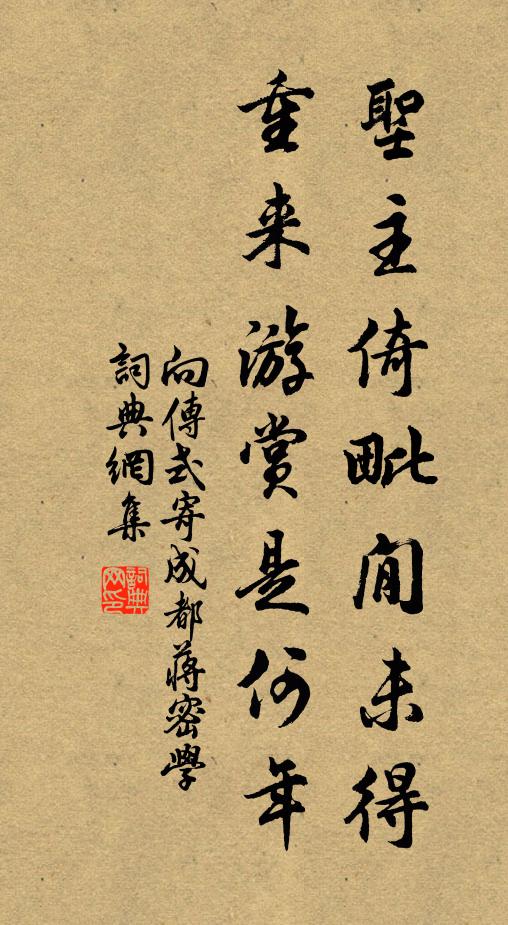 聖主倚毗閒未得
重来游賞是何年
向傳式寄成都蔣密學
詞典網集
詞典网印